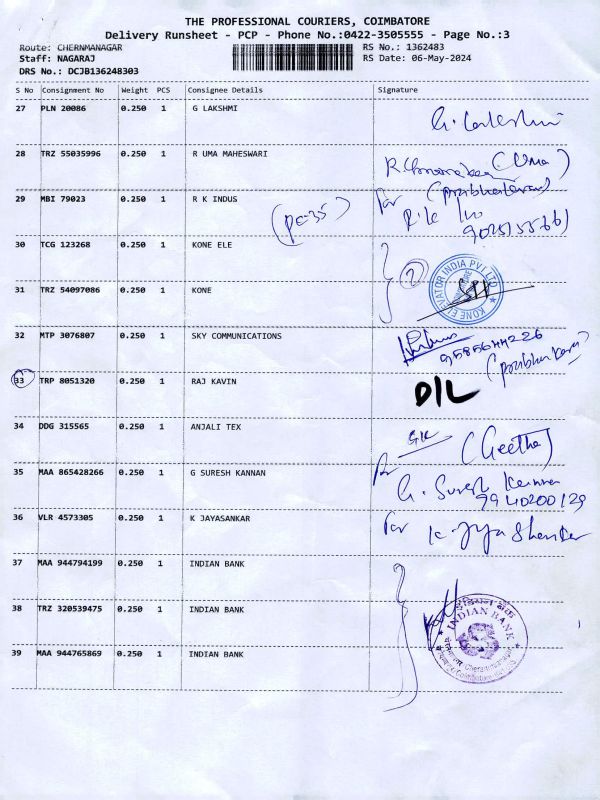 THE PROFESSIONAL COURIERS, COIMBATORE
Delivery Runsheet - PCP - Phone No.:0422-3505555 - Page No.:3
Route: CHERNMANAGAR RS No.: 1362483
Staff: NAGARAJ RS Date: 06-May-2024
DRS No.: DCJB136248303
S No Consignment No Weight PCS Consignee Details Signature
27 PLN 20086 0.250 1 G LAKSHMI G. Lakshmi
28 TRZ 55035996 0.250 1 R UMA MAHESWARI (Uma)
29 MBI 79023 0.250 1 R K INDUS for
30 TCG 123268 0.250 1 KONE ELE 2
KONE ELEVATOR INDIA PVT LTD
31 TRZ 54097086 0.250 1 KONE
32 MTP 3076807 0.250 1 SKY COMMUNICATIONS
(prabhakaran)
33 TRP 8051320 0.250 1 RAJ KAVIN D/L
34 DDG 315565 0.250 1 ANJALI TEX (Geetha)
35 MAA 865428266 0.250 1 G SURESH KANNAN for
G. Suresh Kannan
9940200129
36 VLR 4573305 0.250 1 K JAYASANKAR for K. Jaya Shankar
37 MAA 944794199 0.250 1 INDIAN BANK
38 TRZ 320539475 0.250 1 INDIAN BANK
INDIAN BANK
39 MAA 944765869 0.250 1 INDIAN BANK